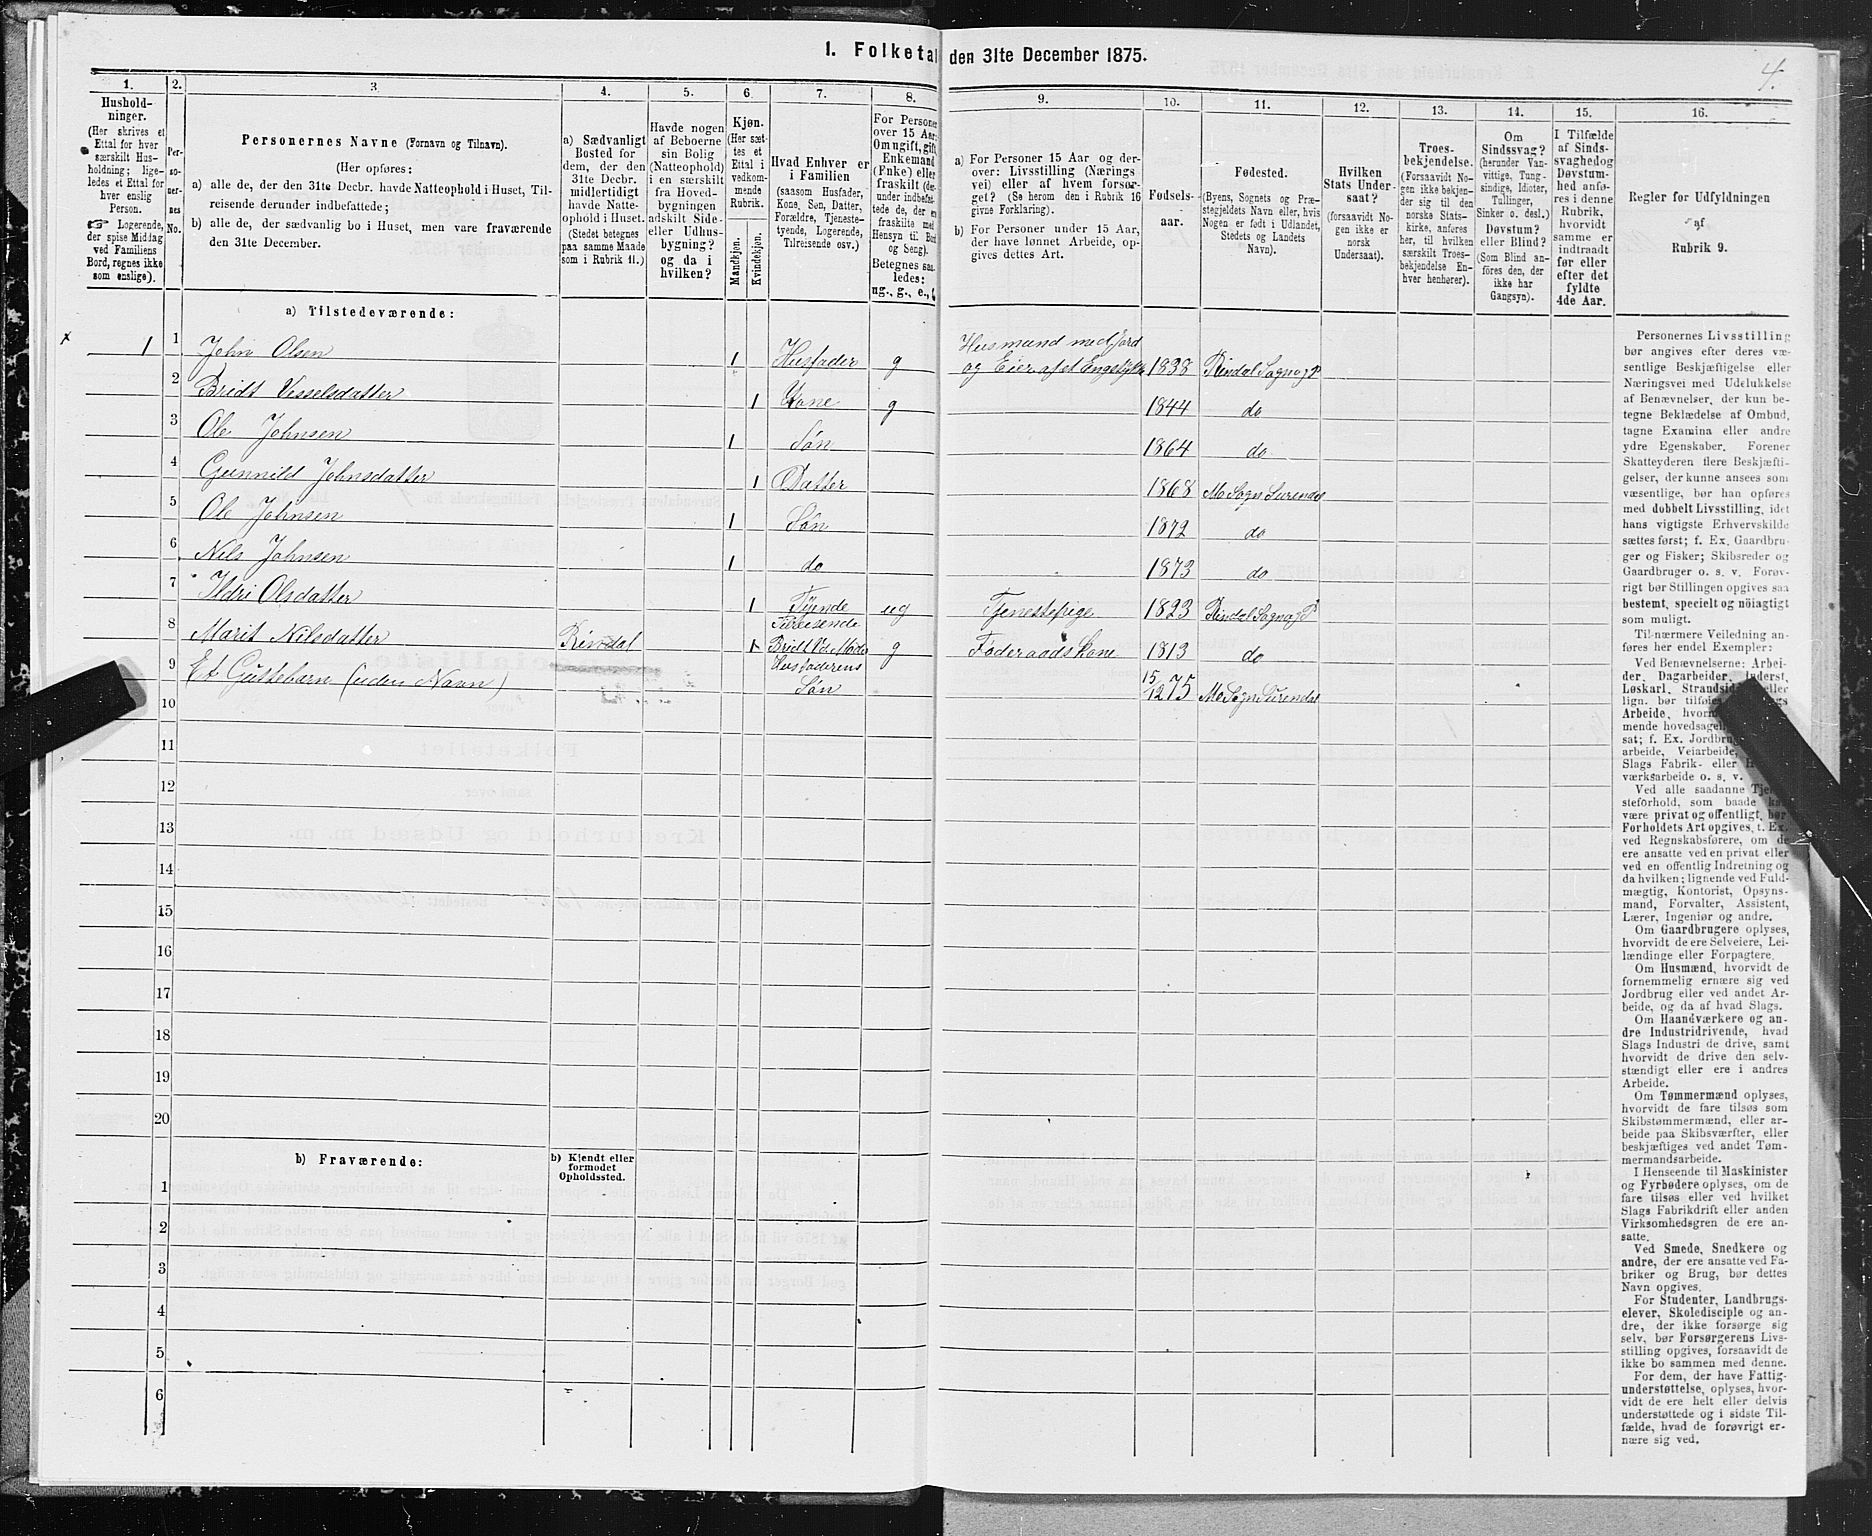 1. Folketal den 31te December 1875.
4.
1.
Hushold-
ninger.
(Her skrives et
Ettal for hver
særskilt Hus-
holdning; lige-
ledes et Ettal for
hver enslig
Person.
☞ Logerende,
der spise Middag
ved Familiens
Bord, regnes ikke
som enslige).
2.
Per-
so-
ner-
nes
No.
3.
Personernes Navne (Fornavn og Tilnavn).
(Her opføres:
a) alle de, der den 31te Decbr. havde Natteophold i Huset, Til-
reisende derunder indbefattede;
b) alle de, der sædvanlig bo i Huset, men vare fraværende
den 31te December.
4.
a) Sædvanligt
Bosted for
dem, der den
31te Decbr.
midlertidigt
havde Natte-
ophold i Huset.
(Stedet betegnes
paa samme Maade
som i Rubrik 11.)
5.
Havde nogen
af Beboerne
sin Bolig
(Natteophold)
i en særskilt
fra Hoved-
bygningen
adskilt Side-
eller Udhus-
bygning?
og da i
hvilken?
6.
Kjøn.
(Her sæt-
tes et
Ettal i
vedkom-
mende
Rubrik.
Mandkjøn.
Kvindekjøn.
7.
Hvad Enhver er
i Familien
(saasom Husfader,
Kone, Søn, Datter,
Forældre, Tjeneste-
tyende, Logerende,
Tilreisende osv.)
8.
For Personer
over 15 Aar:
Om ugift, gift,
Enkemand
(Enke) eller
fraskilt (der-
under indbefat-
tede de, der ere
fraskilte med
Hensyn til Bord
og Seng).
Betegnes saa-
ledes:
ug., g., e.,
9.
a) For Personer 15 Aar og der-
over: Livsstilling (Nærings
vei) eller af hvem forsør-
get? (Se herom den i Rubrik 16
givne Forklaring).
b) For Personer under 15 Aar,
der have lønnet Arbeide, op-
gives dettes Art.
10.
Fødsels-
aar.
11.
Fødested.
(Byens, Sognets og Præ-
stegjeldets Navn eller, hvis
Nogen er født i Udlandet,
Stedets og Landets
Navn).
12.
Hvilken
Stats Under-
saat?
(forsaavidt No-
gen ikke er
norsk
Undersaat).
13.
Troes-
bekjendelse.
(Forsaavidt No-
gen ikke bekjen-
der sig til den
norske Stats-
kirke, anføres
her, til hvilken
særskilt Troes-
bekjendelse En-
hver henhører).
14.
Om
Sindssvag?
(herunder Van-
vittige, Tung-
sindige, Idioter,
Tullinger,
Sinker o. desl.)
Døvstum?
eller Blind?
(Som Blind an-
føres den, der
ikke har
Gangsyn).
15.
I Tilfælde
af Sinds-
svaghed og
Døvstum-
hed anfø-
res i denne
Rubrik,
hvorvidt
samme er
indtraadt
før eller
efter det
fyldte
4de Aar.
16.
Regler for Udfyldningen
af
Rubrik 9.
a) Tilstedeværende:
1 1 John Olsen 1 Husfader g Husmand med Jord
og Eier af et Engstykke 1838 Rindal Sogn og P
2 Bridt Vesselsdatter 1 Kone g 1844 do
3 Ole Johnsen 1 Søn 1864 do
4 Gunnild Johnsdatter 1 Datter 1868 Mo Sogn Surendal
5 Ole Johnsen 1 Søn 1872 do
6 Nils Johnsen 1 do 1873 do
7 Ildri Olsdatter 1 Tyende ug Tjenestepige 1823 Rindal Sogn og P
8 Marit Nilsdatter Rindal 1 Tilreisende
Bridt Vd. Moder g Føderaadskone 1813 do
9 Et Guttebarn (uden Navn) Husfaderens
Søn 15/12 75 Mo Sogn Surendal
10
11
12
13
14
15
16
17
18
19
20
b) Fraværende:
b) Kjendt eller
formodet
Opholdssted.
1
2
3
4
5
6
Personernes Livsstilling
bør angives efter deres væ-
sentlige Beskjæftigelse eller
Næringsvei med Udelukkelse
af Benævnelser, der kun be-
tegne Beklædelse af Ombud,
tagne Examina eller andre
ydre Egenskaber. Forener
Skatteyderen flere Beskjæfti-
gelser, der kunne ansees som
væsentlige, bør han opføres
med dobbelt Livsstilling, idet
hans vigtigste Erhvervskilde
sættes først; f. Ex. Gaardbru-
ger og Fisker; Skibsreder og
Gaardbruger o. s. v. Forøv-
rigt bør Stillingen opgives saa
bestemt, specielt og nöiagtigt
som muligt.
Til nærmere Veiledning an-
føres her endel Exempler:
Ved Benævnelserne: Arbei-
der, Dagarbeider, Inderst,
Løskarl, Strandsidder eller
lign. bør tilføies
Arbeide, hvor
mende hovedsagel
sat; f. Ex. Jordbru
arbeide, Veiarbeide,
Slags Fabrik- eller
værksarbeide o. s. v.
Ved alle saadanne Tjene-
steforhold, som baade kan
være privat og offentligt, bør
Forholdets Art opgives, t. Ex.
ved Regnskabsførere, om de
ere ansatte ved en privat eller
ved en offentlig Indretning og
da hvilken; lignende ved Fuld-
mægtig, Kontorist, Opsyns-
mand, Forvalter, Assistent,
Lærer, Ingeniør og andre.
Om Gaardbrugere oplyses,
hvorvidt de ere Selveiere, Lei-
lændinge eller Forpagtere.
Om Husmænd, hvorvidt de
fornemmelig ernære sig ved
Jordbrug eller ved andet Ar-
beide, og da af hvad Slags.
Om Haandværkere og an-
dre Industridrivende, hvad
Slags Industri de drive, samt
hvorvidt de drive den selv-
stændigt eller ere i andres
Arbeide.
Om Tømmermænd oplyses,
hvorvidt de fare tilsøs som
Skibstømmermænd, eller ar-
beide paa Skibsværfter, eller
beskjæftiges ved andet Tøm-
mermandsarbeide.
I Henseende til Maskinister
og Fyrbødere oplyses, om de
fare tilsøs eller ved hvilket
Slags Fabrikdrift eller anden
Virksomhedsgren de ere an-
satte.
Ved Smede, Snedkere og
andre, der ere ansatte ved Fa-
briker og Brug, bør dettes
Navn opgives.
For Studenter, Landbrugs-
elever, Skoledisciple og an-
dre, der ikke forsørge sig
selv, bør Forsørgerens Livs-
stilling opgives, forsaavidt de
ikke bo sammen med denne.
For dem, der have Fattig-
understøttelse, oplyses, hvor-
vidt de ere helt eller delvis
understøttede og i sidste Til-
fælde, hvad de forøvrigt er-
nære sig ved.